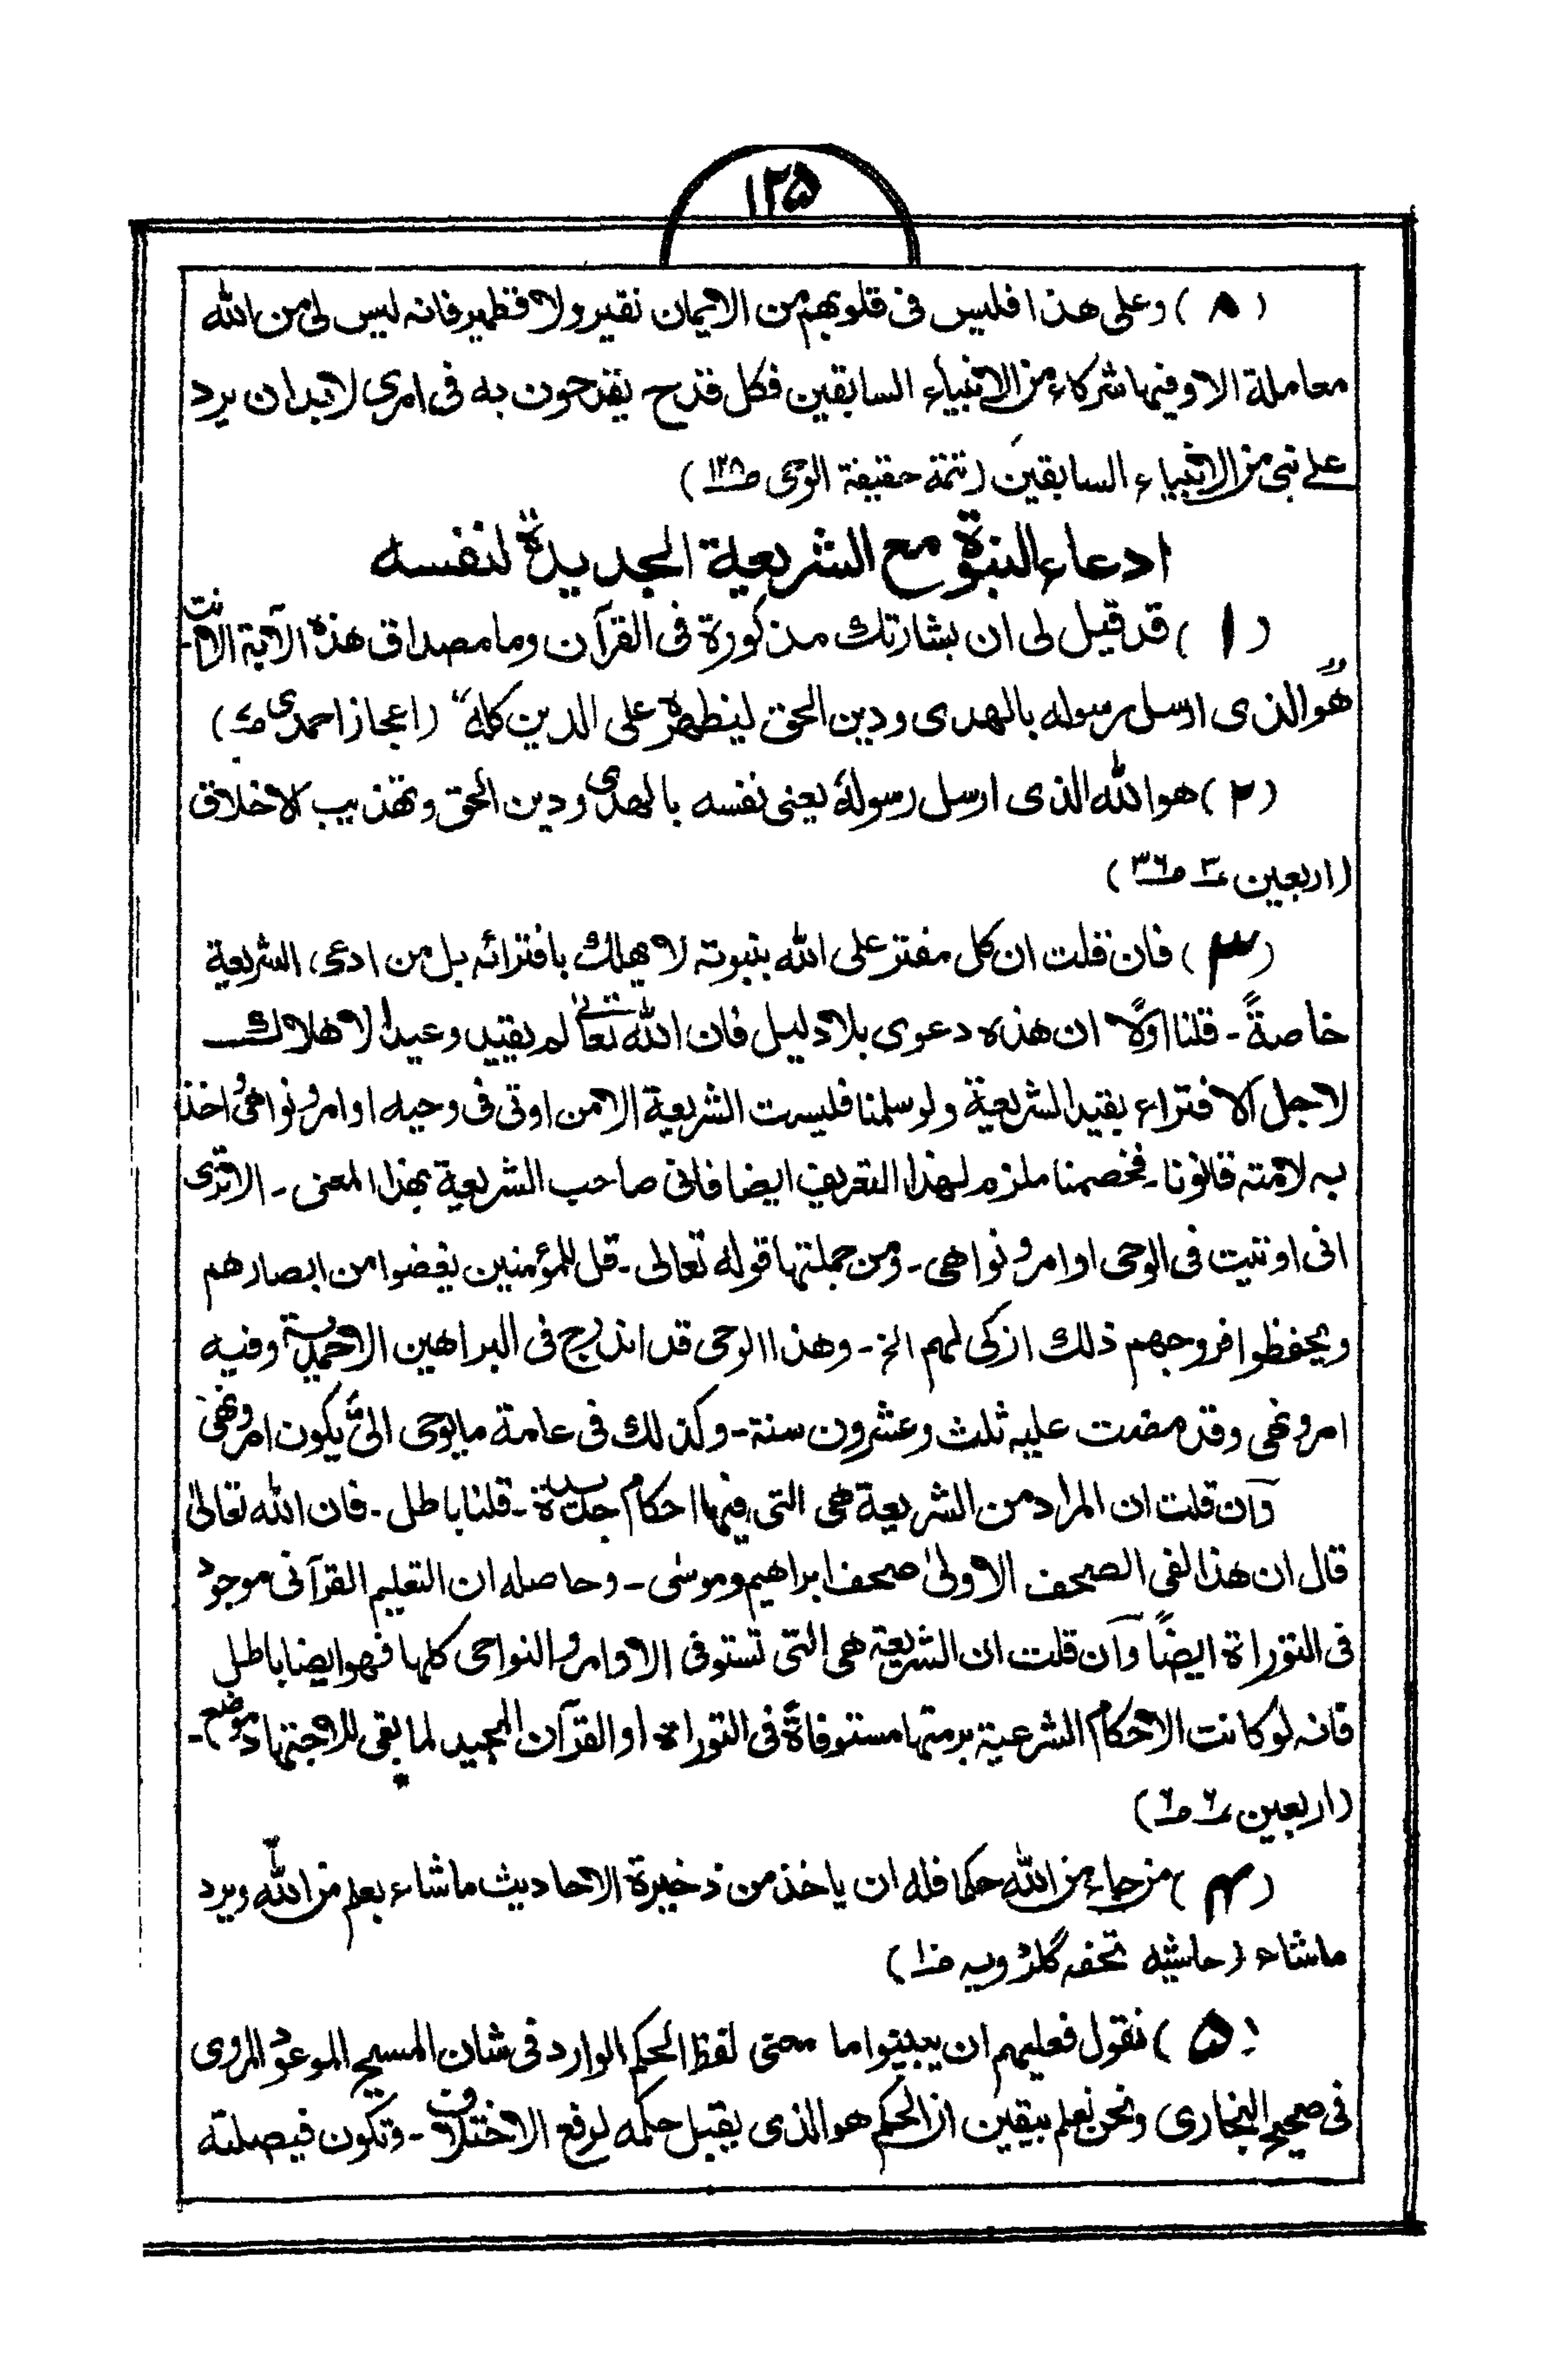 ١٢۵
(٨) وعلى هذا فليس فى قلوبهم من الايمان نقير ولا قطمير فانه ليس لى من الله
معاملة الا وفيها شركاء من الانبياء السابقين فكل قدح يقدحون به فى امرى لابدان يرد
على نبى من الانبياء السابقين (تتمة حقيقة الوحى ص١٢٨)
ادعاء النبوة مع الشريعة الجديدة لنفسه
(١) قد قيل لى ان بشارتك مذكورة فى القرآن وما مصداق هذه الآية الا انت
هو الذى ارسل رسوله بالهدى ودين الحق ليظهره على الدين كله" (اعجاز احمدى)
(٢) هو الله الذى ارسل رسولهٗ يعنى نفسه بالهدى ودين الحق وتهذيب الاخلاق
(اربعين ٣ ص٣٦)
(٣) فان قلت ان كل مفتر على الله بنبوته لا يهلك بافترائه بل من ادعى الشريعة
خاصةً - قلنا اوّلا ان هذه دعوى بلا دليل فان الله تعالٰى لم يقيد وعيد الاهلاك
لاجل الافتراء بقيد الشريعة ولو سلمنا فليست الشريعة الا من اوتى فى وحيه اوامر ونواهى واخذ
به لامته قانونا - فخصمنا ملزم لهذا التعريف ايضا فانى صاحب الشريعة بهذا المعنى - الا ترى
انى اوتيت فى الوحى اوامر ونواهى - ومن جملتها قوله تعالى - قل للمؤمنين يغضوا من ابصارهم
ويحفظوا فروجهم ذلك ازكى لهم الخ - وهذا الوحى قد اندرج فى البراهين الاحمدية وفيه
امر ونهى وقد مضت عليه ثلث وعشرون سنة - وكذلك فى عامة ما يوحى الىّ يكون امر ونهى
وان قلت ان المراد من الشريعة هى التى فيها احكام جديدة - قلنا باطل - فان الله تعالىٰ
قال ان هذا لفى الصحف الاولىٰ صحف ابراهيم وموسٰى - وحاصله ان التعليم القرآنى موجود
فى التوراة ايضاً وآن قلت ان الشريعة هى التى تستوفى الاوامر والنواحى كلها فهو ايضا باطل
فانه لو كانت الاحكام الشرعية برمتها مستوفاةً فى التوراة او القرآن المجيد لما بقى للاجتهاد موضع -
(اربعين ٤ ص٦)
(٤) من جاء من الله حكما فله ان ياخذ من ذخيرة الاحاديث ماشاء بعلم من الله ويرد
ماشاء (حاشيه تحفه گلڑويه ص١٠)
(۵) نقول فعليهم ان يبينوا ما معنى لفظ الحكم الوارد فى شان المسيح الموعود المروى
فى صحيح البخارى ونحن نعلم بيقين ان الحكم هو الذى يقبل حكمه لرفع الاختلاف - وتكون فيصلته